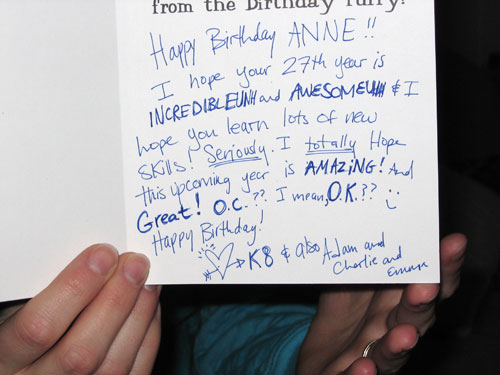 from the Birthday Furry!
Happy Birthday ANNE!!
I hope your 27th year is
INCREDIBLEUHH and AWESOMEUHH & I
hope you learn lots of new
skills! Seriously. I totally Hope
this upcoming year is AMAZiNG! And
Great! O.C.?? I mean, O.K.?? :)
Happy Birthday!
K8 & also Adam and
Charlie and
Emma